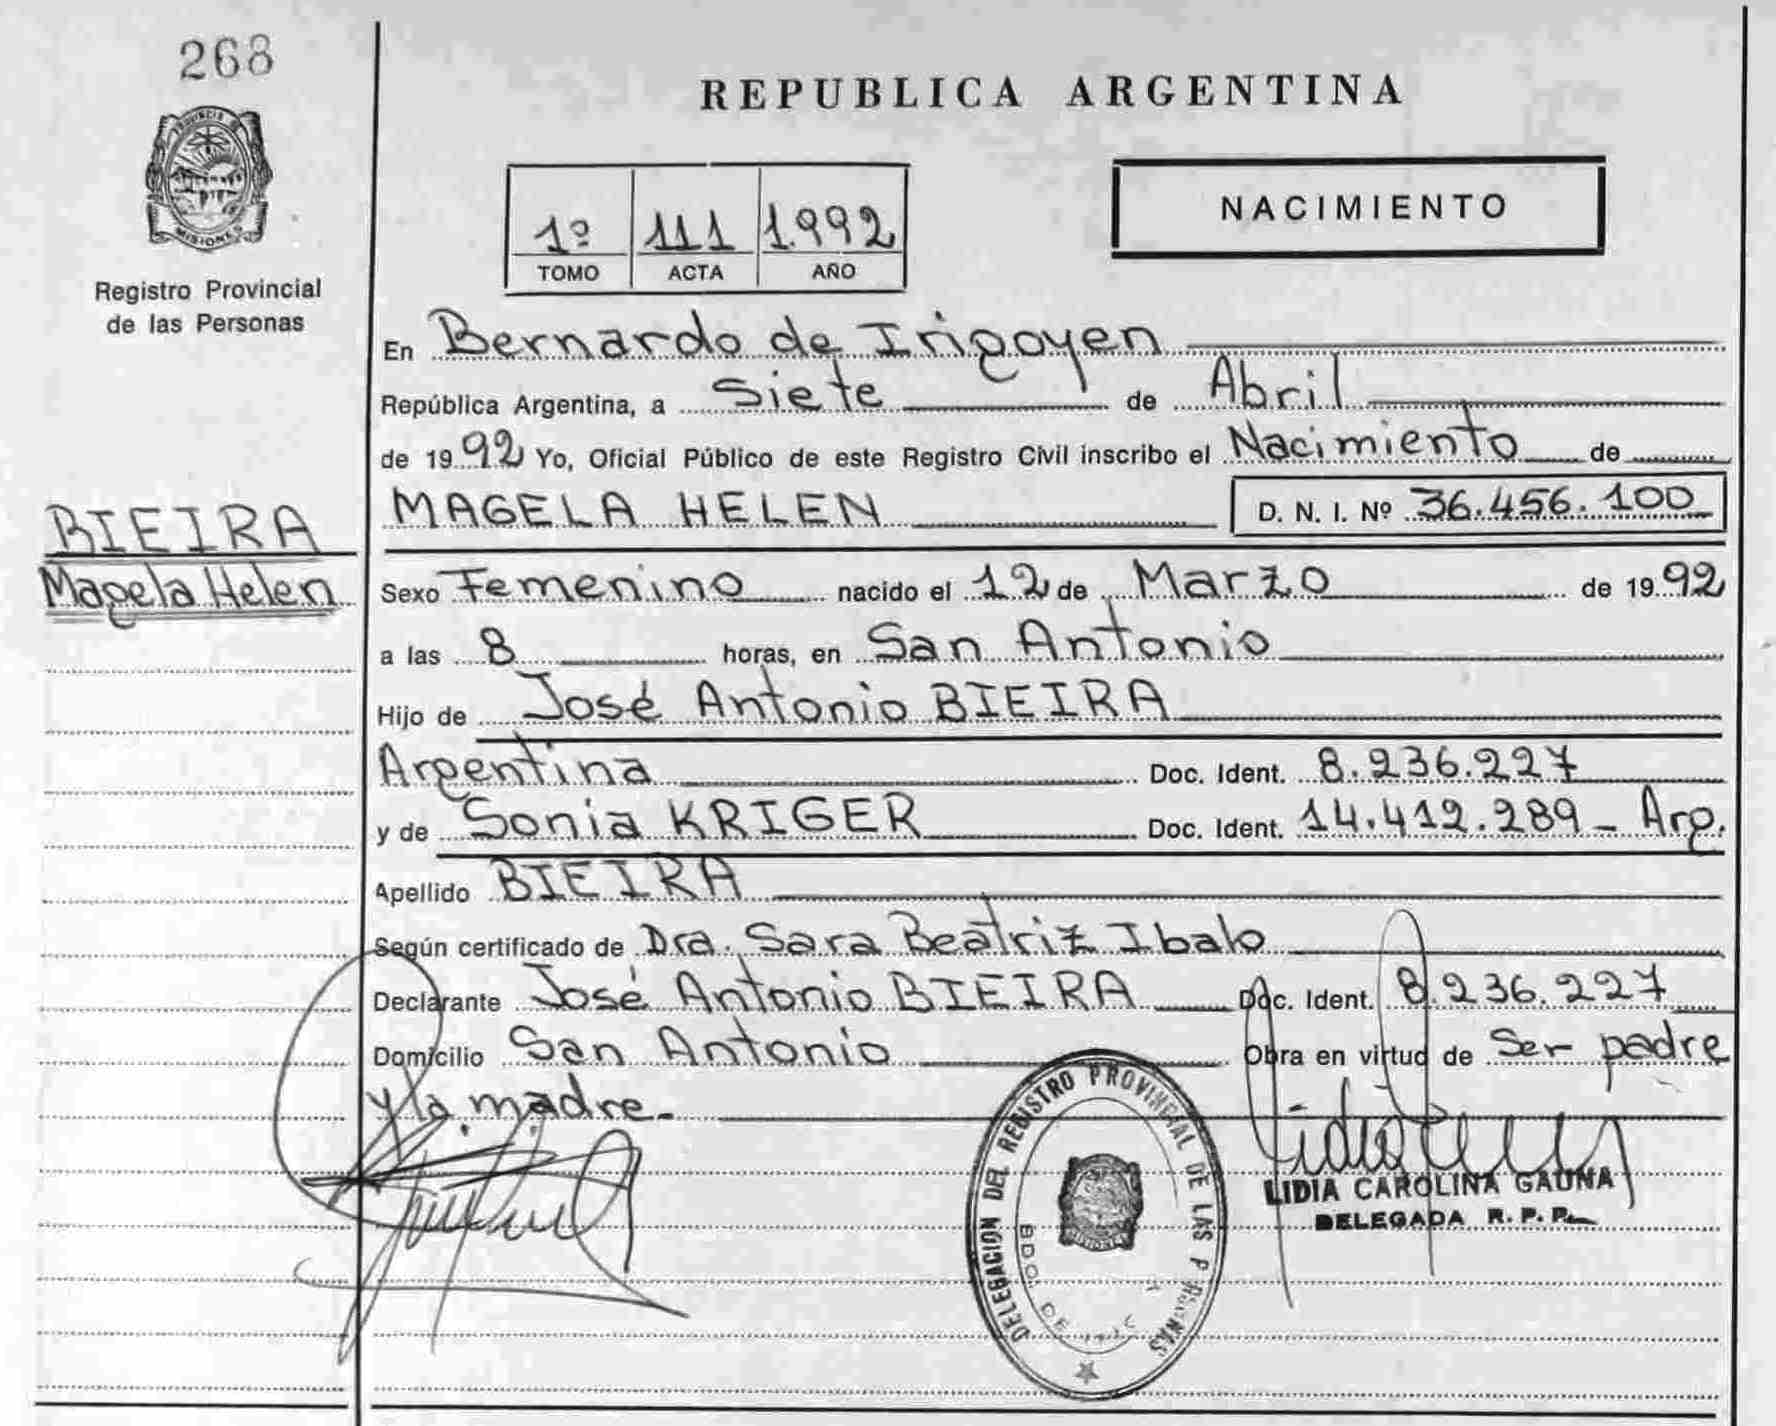 268
PROVINCIA DE
MISIONES
Registro Provincial
de las Personas
REPUBLICA ARGENTINA
1º 111 1.992
TOMO ACTA AÑO
NACIMIENTO
En Bernardo de Irigoyen
República Argentina, a Siete de Abril
de 1992 Yo, Oficial Público de este Registro Civil inscribo el Nacimiento de
MAGELA HELEN D. N. I. Nº 36.456.100
BIEIRA
Magela Helen
Sexo Femenino nacido el 12 de Marzo de 1992
a las 8 horas, en San Antonio
Hijo de José Antonio BIEIRA
Argentina Doc. Ident. 8.236.227
y de Sonia KRIGER Doc. Ident. 14.412.289 - Arg.
Apellido BIEIRA
Según certificado de Dra. Sara Beatriz Ibalo
Declarante José Antonio BIEIRA Doc. Ident. 8.236.227
Domicilio San Antonio Obra en virtud de Ser padre
y la madre.-
DELEGACION DEL REGISTRO PROVINCIAL DE LAS
BDO. DE
MISIONES
LIDIA CAROLINA GAUNA
DELEGADA R. P. P.